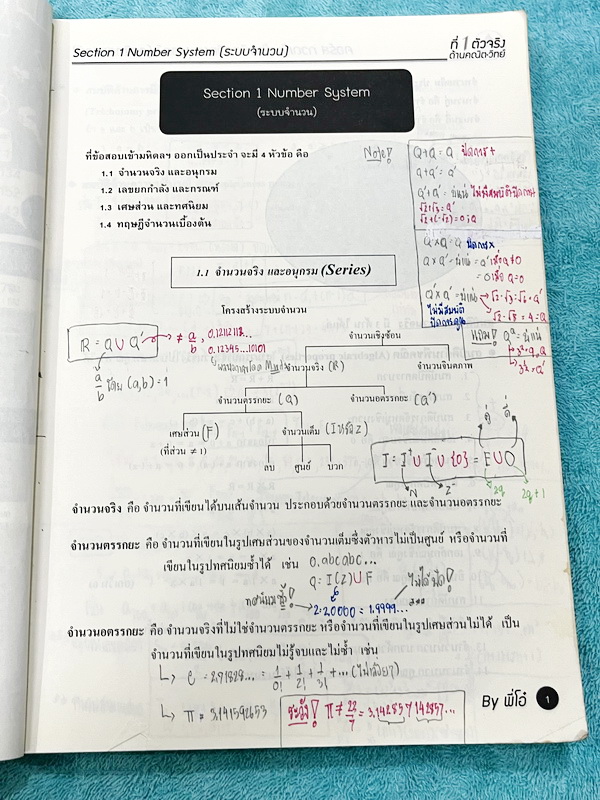 Section 1 Number System (ระบบจำนวน)
ที่ 1 ตัวจริง
ด้านคณิต-วิทย์
Section 1 Number System
(ระบบจำนวน)
ที่ข้อสอบเข้ามหิดลฯ ออกเป็นประจำ จะมี 4 หัวข้อ คือ
1.1 จำนวนจริง และอนุกรม
1.2 เลขยกกำลัง และกรณฑ์
1.3 เศษส่วน และทศนิยม
1.4 ทฤษฎีจำนวนเบื้องต้น
Note!
Q+Q = Q ปิดการ+
Q+Q' = Q'
Q'+Q' = ไม่แน่ ไม่มีสมบัติปิดการ+
√2+√3 = Q'
√2+(-√2) = 0 ; Q
Q×Q = Q ปิดการ×
Q×Q' = ไม่แน่ = Q' เมื่อ Q≠0
= 0 เมื่อ Q=0
Q'×Q' = ไม่แน่ → √2·√3 = √6 = Q'
√2·√8 = 4 = Q
ไม่มีสมบัติ
ปิดการคูณ
1.1 จำนวนจริง และอนุกรม (Series)
แถม! Qᵃ = ไม่แน่
โครงสร้างระบบจำนวน
จำนวนเชิงซ้อน
จำนวนจริง (R)
จำนวนจินตภาพ
R = Q ∪ Q' → ≠ a/b , 0.12112111...
0.12345...10101
a/b โดย (a,b) = 1
จำนวนตรรกยะ (Q)
จำนวนอตรรกยะ (Q')
เศษส่วน (F)
(ที่ส่วน ≠ 1)
จำนวนเต็ม (I หรือ Z)
ลบ ศูนย์ บวก
คู่ คี่
I = I⁺ ∪ I⁻ ∪ {0} = E ∪ O
N Z⁻ 2q 2q+1
จำนวนจริง คือ จำนวนที่เขียนได้บนเส้นจำนวน ประกอบด้วยจำนวนตรรกยะ และจำนวนอตรรกยะ
จำนวนตรรกยะ คือ จำนวนที่เขียนในรูปเศษส่วนของจำนวนเต็มซึ่งตัวหารไม่เป็นศูนย์ หรือจำนวนที่
เขียนในรูปทศนิยมซ้ำได้ เช่น 0.abcabc...
Q = I(Z) ∪ F
ทศนิยมซ้ำ!
2 : 2.0000 = 1.9999...
จำนวนอตรรกยะ คือ จำนวนจริงที่ไม่ใช่จำนวนตรรกยะ หรือจำนวนที่เขียนในรูปเศษส่วนไม่ได้ เป็น
จำนวนที่เขียนในรูปทศนิยมไม่รู้จบและไม่ซ้ำ เช่น
↳ e = 2.71828... = 1/0! + 1/1! + 1/2! + 1/3! + ...
↳ π = 3.141592653
ระวัง! π ≠ 22/7 = 3.142857 142857...
By พี่โอ๋ 1